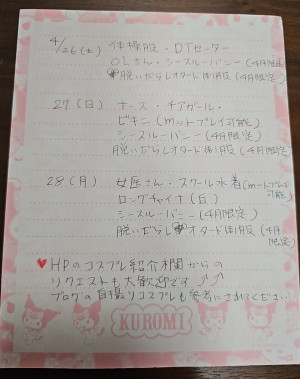 4/26(土) 体操服・DTセーター
OLさん・シースルーバニー(4月限定)
脱いだらレオタード制服(4月限定)
27.(日) ナース・チアガール・
ビキニ(mットプレイ可能)
シースルーバニー(4月限定)
脱いだらレオタード制服(4月限定)
28.(月) 女医さん・スクール水着(mットプレイ可能)
ロングチャイナ(白)
シースルーバニー(4月限定)
脱いだらレオタード制服(4月限定)
♥HPのコスプレ紹介欄からの
リクエストも大歓迎です⤴⤴
ブログの自撮りコスプレも参考にされてください
KUROMI